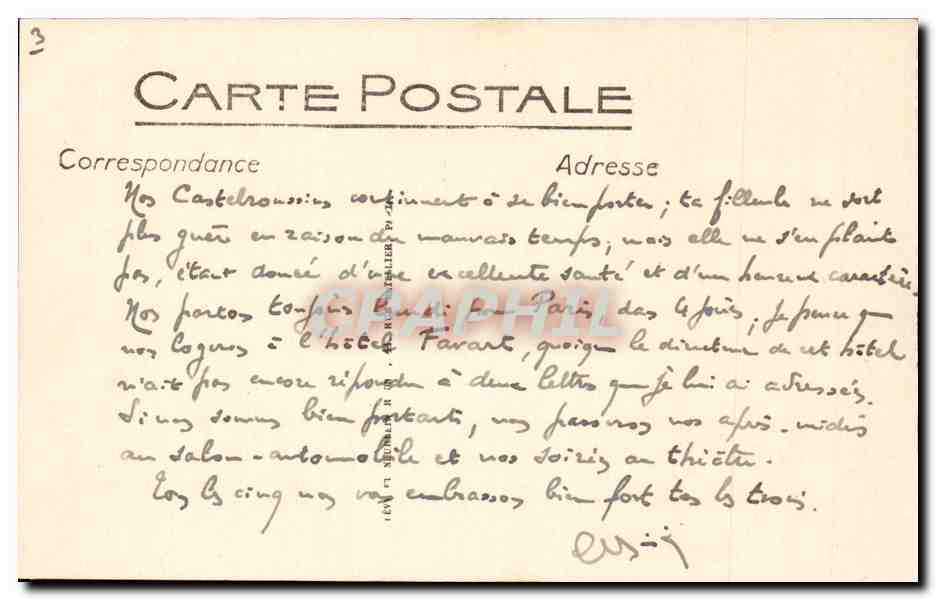 3
CARTE POSTALE
Correspondance
Adresse
Nos Castelroussins continuent à se bien porter ; ta filleule ne sort
plus guère en raison du mauvais temps, mais elle ne s'en plaint
pas, étant douée d'une excellente santé et d'un heureux caractère.
Nos partons toujours pour Paris dans 4 jours. Je pense que
nos logeros à l'hôtel Favart, quoique le directeur de cet hôtel
n'ait pas encore répondu à deux lettres que je lui ai adressées.
Si nos sommes bien portants, nos passeros nos après-midis
au salon-automobile et nos soirées au théâtre.
Tos les cinq nos vos embrassos bien fort tos les trois.
CPAPHIL